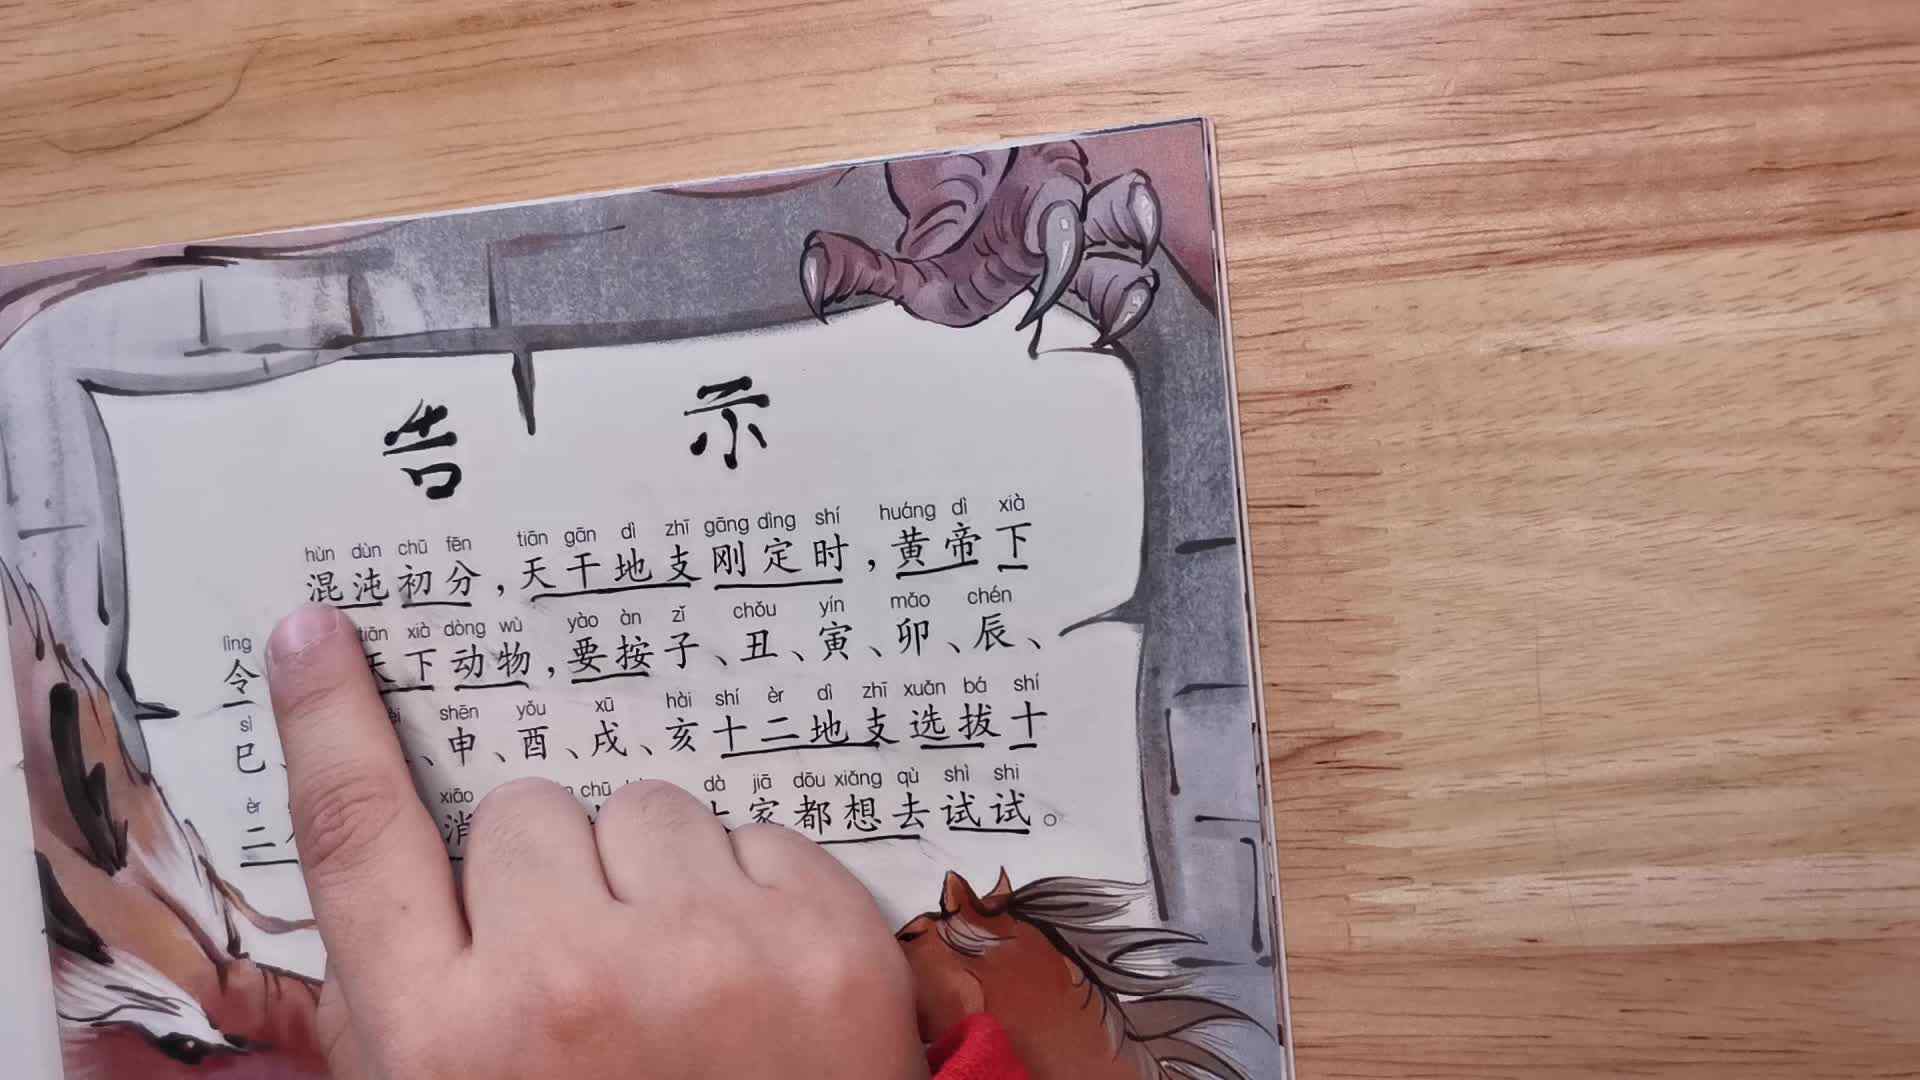 告 示
hùn dùn chū fēn tiān gān dì zhī gāng dìng shí huáng dì xià
混沌初分，天干地支刚定时，黄帝下
lìng tiān xià dòng wù yào àn zǐ chǒu yín mǎo chén
令 天下动物，要按子、丑、寅、卯、辰、
sì shēn yǒu xū hài shí èr dì zhī xuǎn bá shí
巳、 、申、酉、戌、亥十二地支选拔十
èr xiāo chū dà jiā dōu xiǎng qù shì shi
二 消 大家都想去试试。